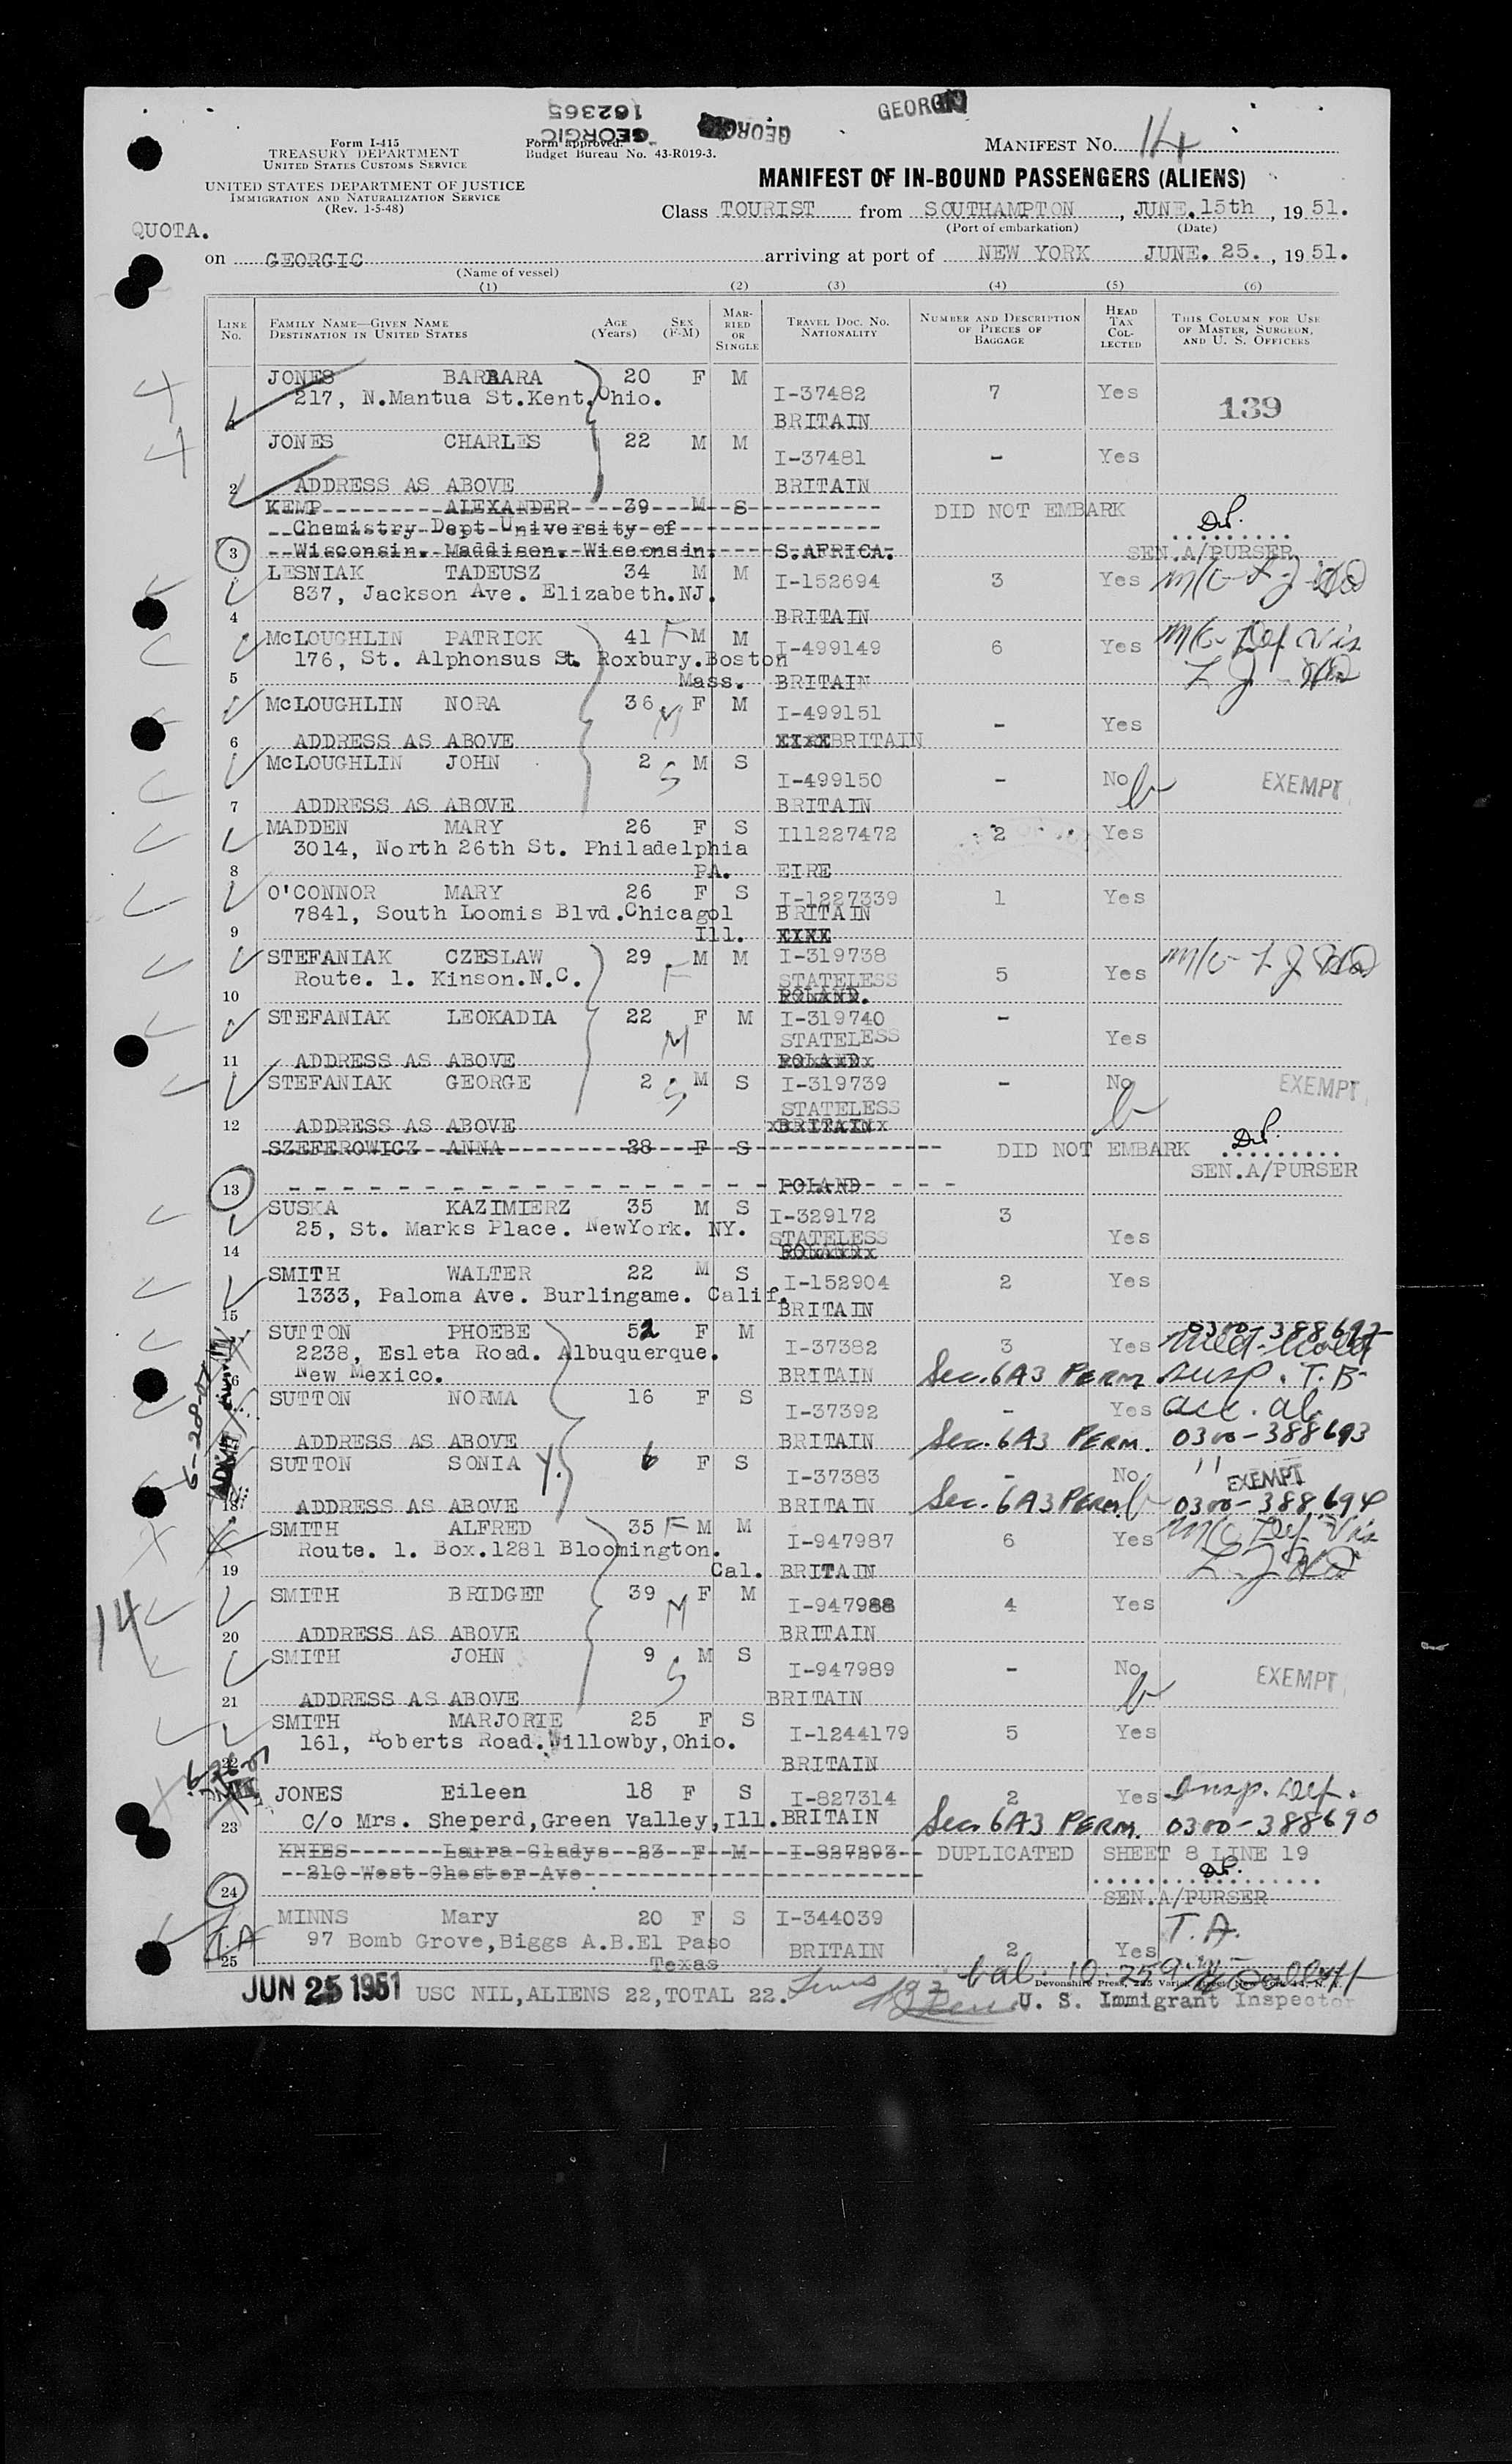 162365
GEORGIC
GEORGIC
GEORGIC
Form I-415
TREASURY DEPARTMENT
UNITED STATES CUSTOMS SERVICE
Form approved.
Budget Bureau No. 43-R019-3.
MANIFEST NO. 14
UNITED STATES DEPARTMENT OF JUSTICE
IMMIGRATION AND NATURALIZATION SERVICE
(Rev. 1-5-48)
MANIFEST OF IN-BOUND PASSENGERS (ALIENS)
QUOTA.
Class TOURIST from SOUTHAMPTON, JUNE.15th, 1951.
(Port of embarkation) (Date)
on GEORGIC arriving at port of NEW YORK JUNE. 25., 1951.
(Name of vessel)
(1) (2) (3) (4) (5) (6)
LINE No. FAMILY NAME—GIVEN NAME DESTINATION IN UNITED STATES AGE (Years) SEX (F-M) MARRIED OR SINGLE TRAVEL DOC. NO. NATIONALITY NUMBER AND DESCRIPTION OF PIECES OF BAGGAGE HEAD TAX COLLECTED THIS COLUMN FOR USE OF MASTER, SURGEON, AND U. S. OFFICERS
4 JONES BARBARA 20 F M I-37482 7 Yes 139
217, N.Mantua St.Kent.Ohio.
1 BRITAIN
4 JONES CHARLES 22 M M I-37481 - Yes
2 ADDRESS AS ABOVE BRITAIN
KEMP ALEXANDER 39 M S DID NOT EMBARK
Chemistry Dept University of
3 Wisconsin. Maddison. Wisconsin. S.AFRICA. SEN.A/PURSER
LESNIAK TADEUSZ 34 M M I-152694 3 Yes
837, Jackson Ave. Elizabeth.NJ.
4 BRITAIN
McLOUGHLIN PATRICK 41 F M M I-499149 6 Yes Def Vis
176, St. Alphonsus St. Roxbury.Boston
5 Mass. BRITAIN
McLOUGHLIN NORA 36 M F M I-499151 - Yes
6 ADDRESS AS ABOVE BRITAIN
McLOUGHLIN JOHN 2 S M S I-499150 - No EXEMPT
7 ADDRESS AS ABOVE BRITAIN
MADDEN MARY 26 F S I11227472 2 Yes
3014, North 26th St. Philadelphia
8 PA. EIRE
O'CONNOR MARY 26 F S I-1227339 1 Yes
7841, South Loomis Blvd.Chicagol BRITAIN
9 Ill.
STEFANIAK CZESLAW 29 M M I-319738 5 Yes
Route. 1. Kinson.N.C. F STATELESS
10 POLAND.
STEFANIAK LEOKADIA 22 F M I-319740 - Yes
M STATELESS
11 ADDRESS AS ABOVE POLAND
STEFANIAK GEORGE 2 S M S I-319739 - No EXEMPT
STATELESS
12 ADDRESS AS ABOVE BRITAIN
SZEFEROWICZ ANNA 28 F S DID NOT EMBARK
SEN.A/PURSER
13 POLAND
SUSKA KAZIMIERZ 35 M S I-329172 3 Yes
25, St. Marks Place. NewYork. NY. STATELESS
14
SMITH WALTER 22 M S I-152904 2 Yes
1333, Paloma Ave. Burlingame. Calif.
15 BRITAIN
SUTTON PHOEBE 52 F M I-37382 3 Yes 0300-388692
2238, Esleta Road. Albuquerque.
16 New Mexico. BRITAIN Sec. 6A3 PERM susp. T.B-
SUTTON NORMA 16 F S I-37392 - Yes acc. al.
ADDRESS AS ABOVE BRITAIN Sec. 6A3 PERM. 0300-388693
SUTTON SONIA Y. 6 F S I-37383 - No " EXEMPT
18 ADDRESS AS ABOVE BRITAIN Sec. 6A3 PERM. 0300-388694
SMITH ALFRED 35 F M M I-947987 6 Yes Def. Vis
Route. 1. Box.1281 Bloomington.
19 Cal. BRITAIN
SMITH BRIDGET 39 M F M I-947988 4 Yes
14
20 ADDRESS AS ABOVE BRITAIN
SMITH JOHN 9 S M S I-947989 - No EXEMPT
21 ADDRESS AS ABOVE BRITAIN
SMITH MARJORIE 25 F S I-1244179 5 Yes
161, Roberts Road.Willowby,Ohio.
22 BRITAIN
JONES Eileen 18 F S I-827314 2 Yes
23 C/o Mrs. Sheperd,Green Valley,Ill. BRITAIN Sec. 6A3 PERM. 0300-388690
KNIES Laura Gladys 23 F M I-827293 DUPLICATED SHEET 8 LINE 19
210 West Chester Ave
24 SEN.A/PURSER
MINNS Mary 20 F S I-344039 T.A.
T.A 97 Bomb Grove,Biggs A.B.El Paso BRITAIN 2 Yes
25 Texas
JUN 25 1951 USC NIL,ALIENS 22,TOTAL 22.
U. S. Immigrant Inspector